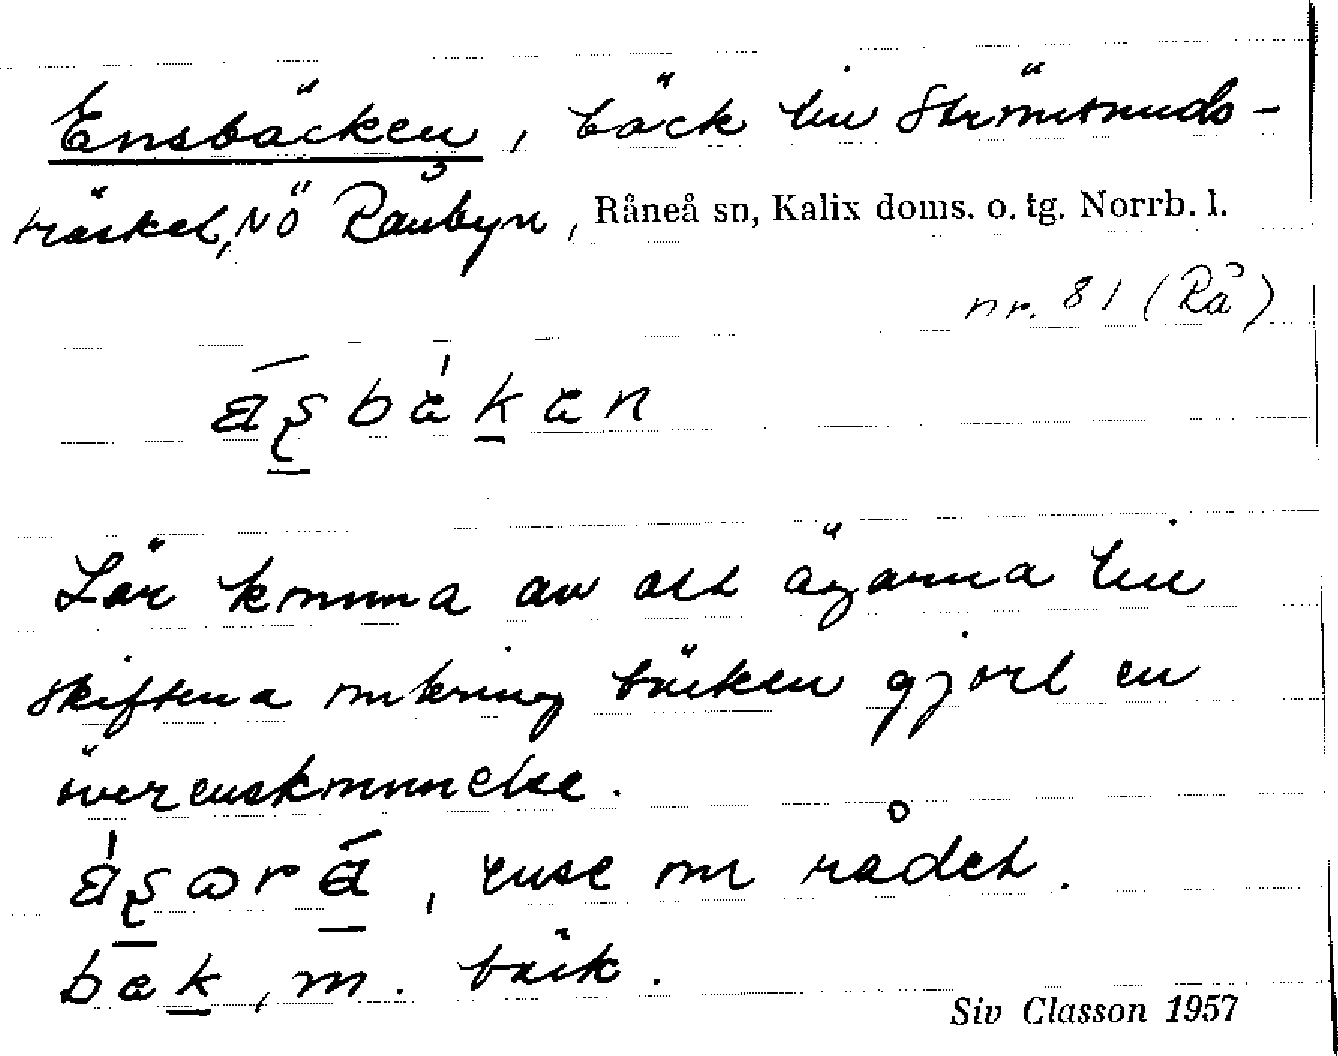 Ensbäcken, bäck till Strömsunds-
träsket, NÖ Rånbyn, Råneå sn, Kalix doms. o. tg. Norrb. l.
nr. 81 (Rå)
Lär komma av att ägarna till
skiftena omkring bäcken gjort en
överenskommelse.
, ense om rådet.
bæk, m. bäck.
Siv Classon 1957